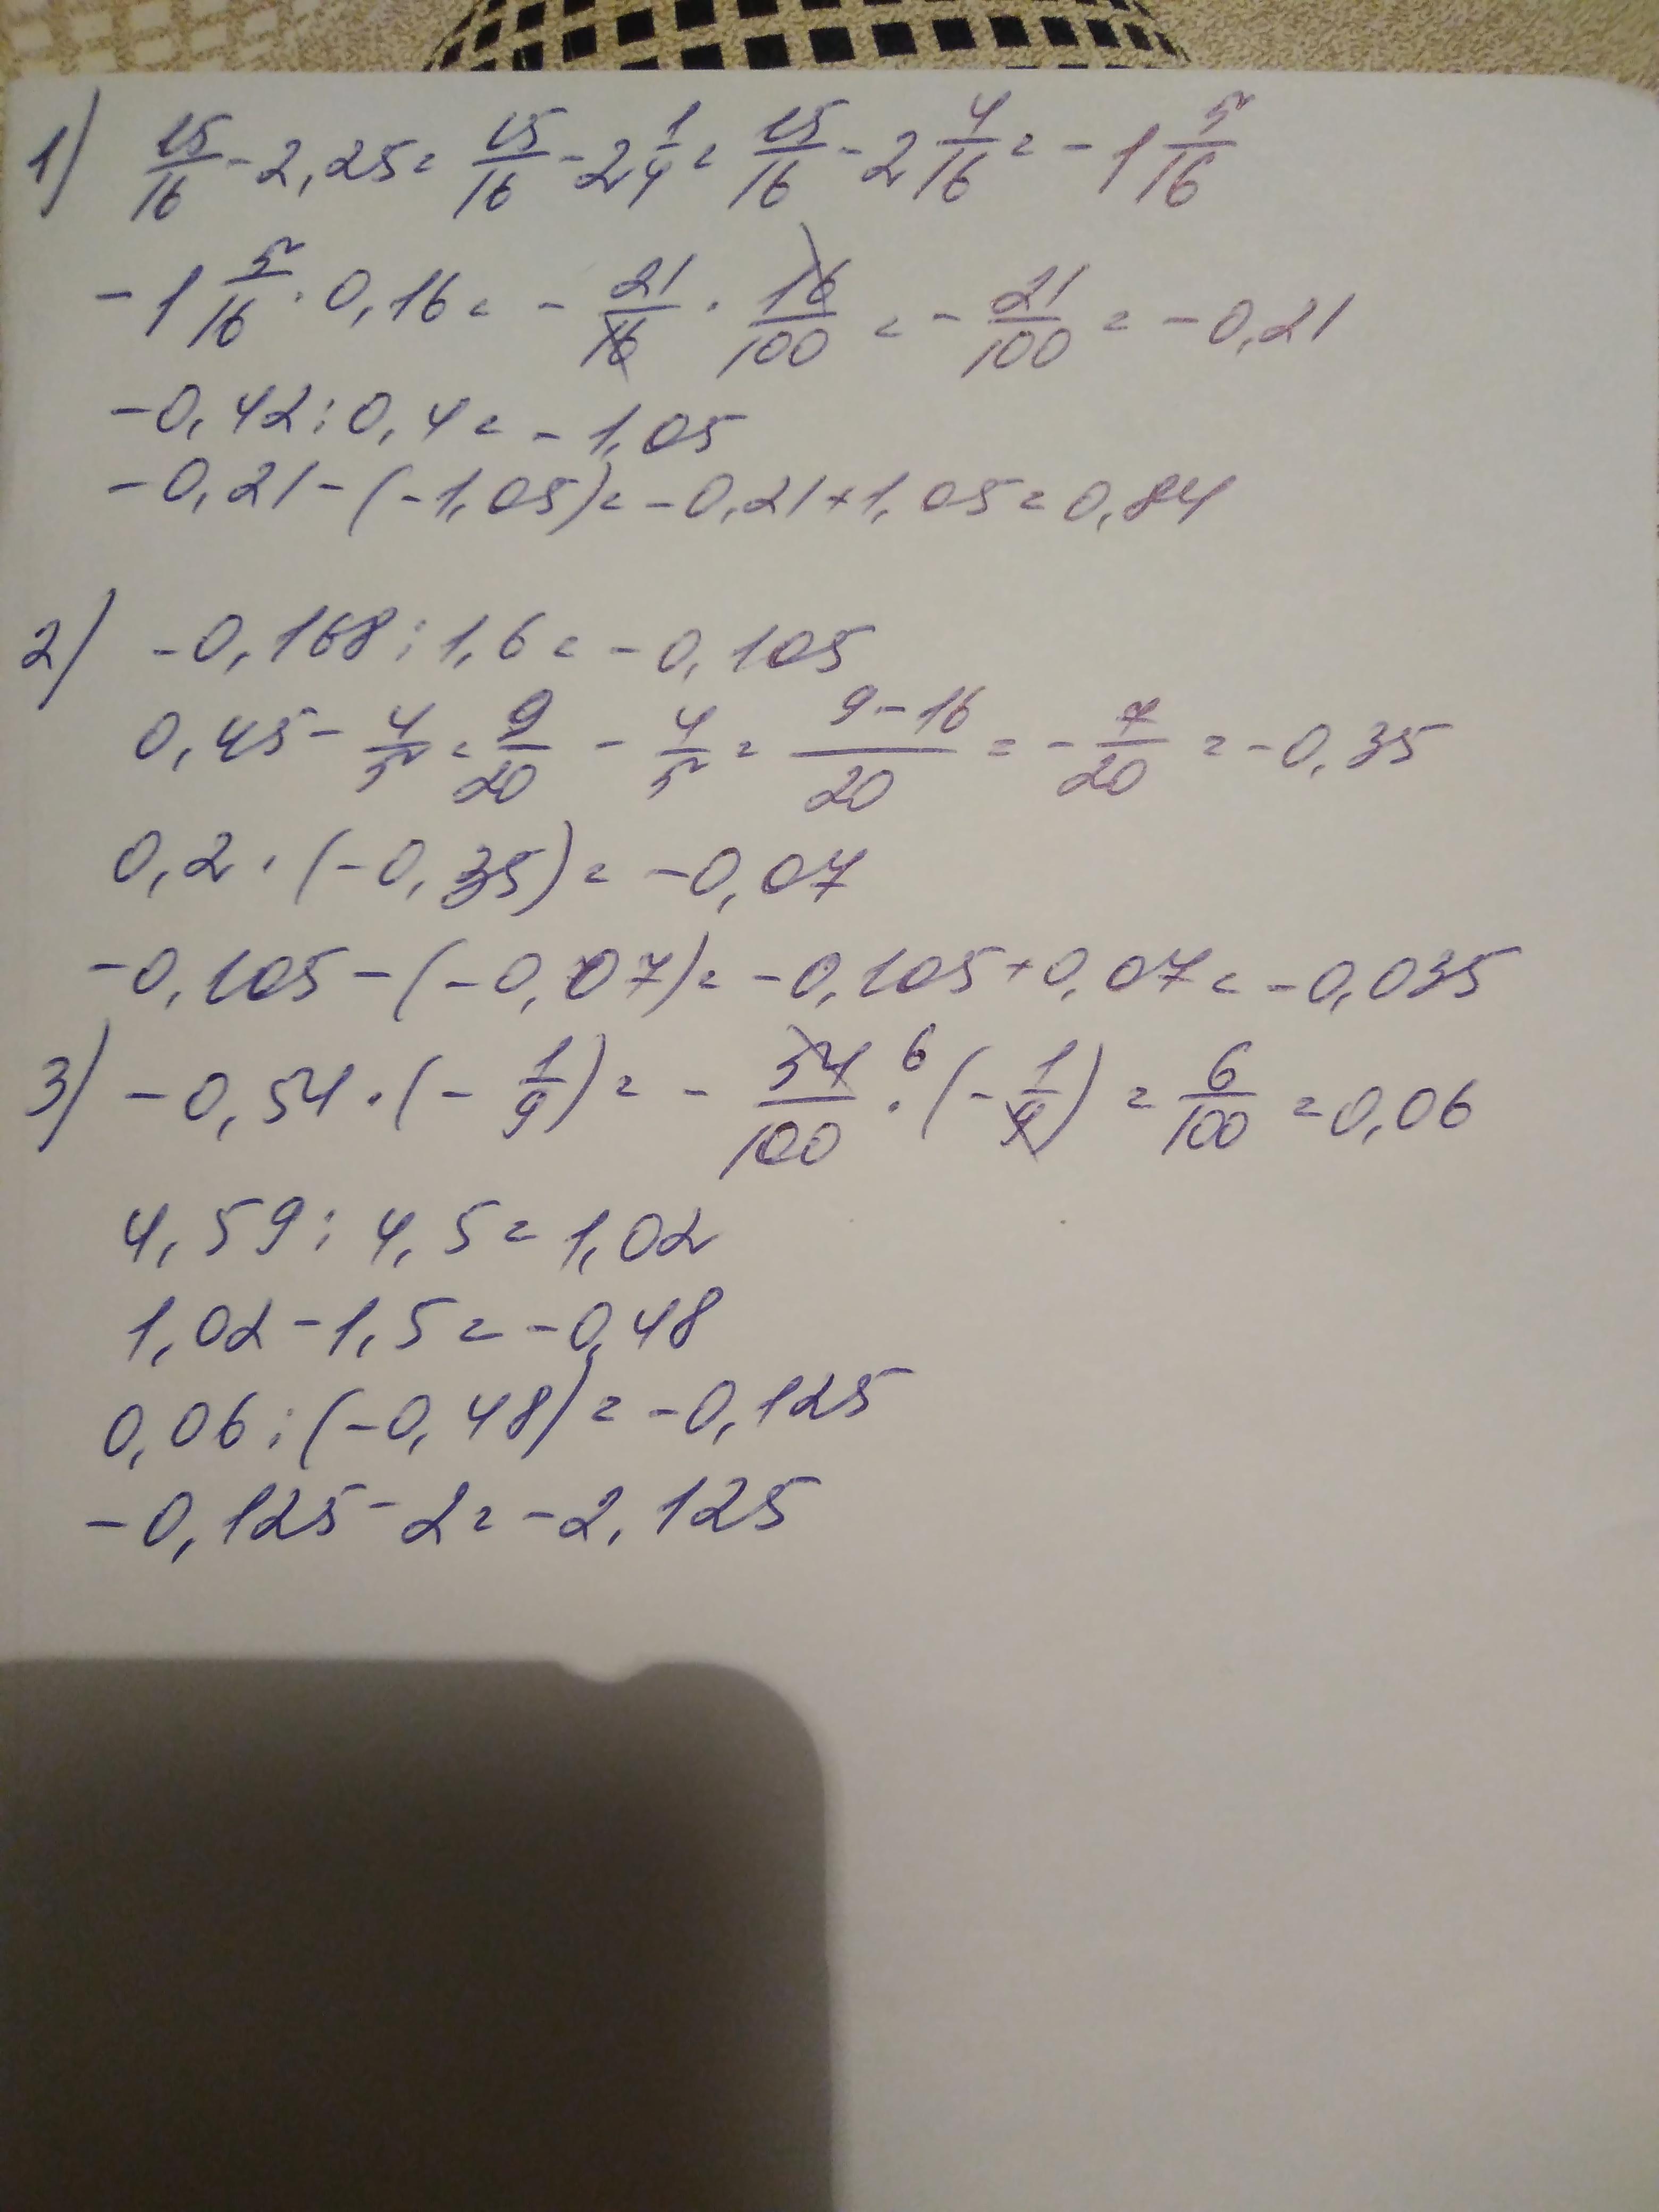 1) 15/16 - 2,25 = 15/16 - 2 1/4 = 15/16 - 2 4/16 = - 1 5/16
- 1 5/16 · 0,16 = - 21/16 · 16/100 = - 21/100 = - 0,21
- 0,42 : 0,4 = - 1,05
- 0,21 - (- 1,05) = - 0,21 + 1,05 = 0,84
2) - 0,168 : 1,6 = - 0,105
0,45 - 4/5 = 9/20 - 4/5 = (9 - 16)/20 = - 7/20 = - 0,35
0,2 · (- 0,35) = - 0,07
- 0,105 - (- 0,07) = - 0,105 + 0,07 = - 0,035
3) - 0,54 · (- 1/9) = - 54/100 6 · (- 1/9) = 6/100 = 0,06
4,59 : 4,5 = 1,02
1,02 - 1,5 = - 0,48
0,06 : (- 0,48) = - 0,125
- 0,125 - 2 = - 2,125